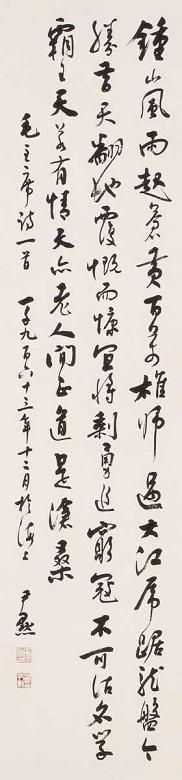 鍾山風雨起蒼黃百萬雄師過大江虎踞龍盤今
勝昔天翻地覆慨而慷宜將剩勇追窮寇不可沽名學
霸王天若有情天亦老人間正道是滄桑
毛主席詩一首 一千九百六十三年十二月於海上 尹默